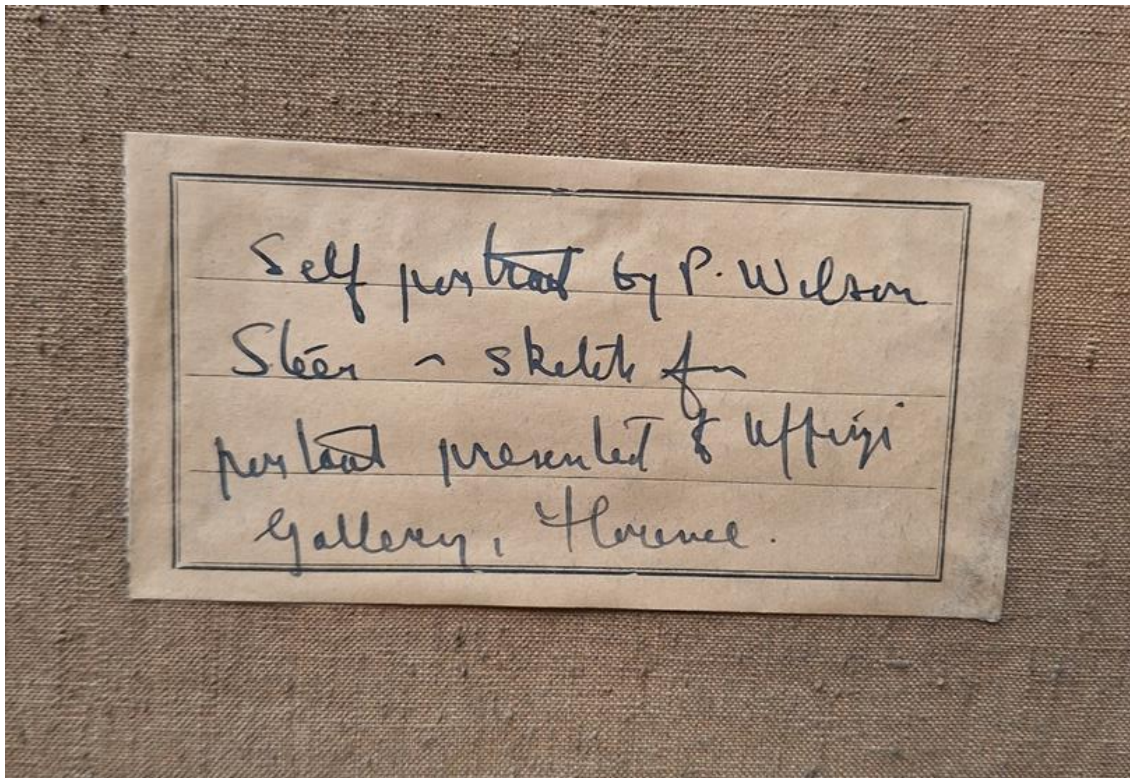 Self portrait by P. Wilson
Steer ~ sketch for
portrait presented to Uffizi
Gallery, Florence.